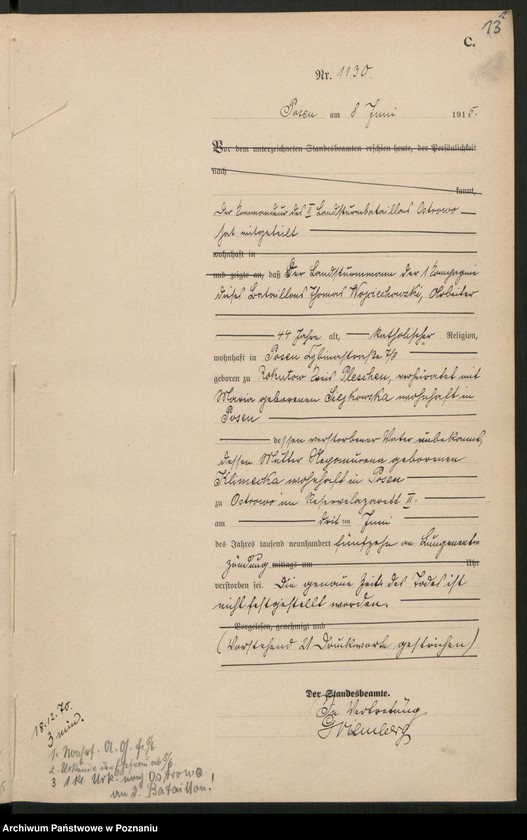 13
C.
Nr. 1130.
Posen am 8 Juni 1915.
Vor dem unterzeichneten Standesbeamten erschien heute, der Persönlichkeit
nach
kannt,
Der Kommandeur des II Landsturmbataillons Ostrowo
hat mitgeteilt
wohnhaft in
und zeigte an, daß Der Landsturmmann der 1 Kompagnie
dieses Bataillons Thomas Wojciechowski, Arbeiter
44 Jahre alt, katholischer Religion,
wohnhaft in Posen Cybinastraße 7/8
geboren zu Rokutow Kreis Pleschen, verheiratet mit
Maria geborenen wohnhaft in
Posen
dessen verstorbener Vater unbekannt,
dessen Mutter geborenen
Klimecka wohnhaft in Posen
zu Ostrowo im Reservelazarett II.
am drit im Juni
des Jahres tausend neunhundert fünfzehn an Lungenent-
zündung mittags um Uhr
verstorben sei. Die genaue Zeit des Todes ist
nicht festgestellt worden.
Vorgelesen, genehmigt und
(Vorstehend 21 Druckworte gestrichen)
Der Standesbeamte.
In Vertretung
18.12.70.
3 mind.
1.
2. Urkunde
3 1 kl. Urk. Ostrowo
an 2. Bataillon!
Archiwum Państwowe w Poznaniu